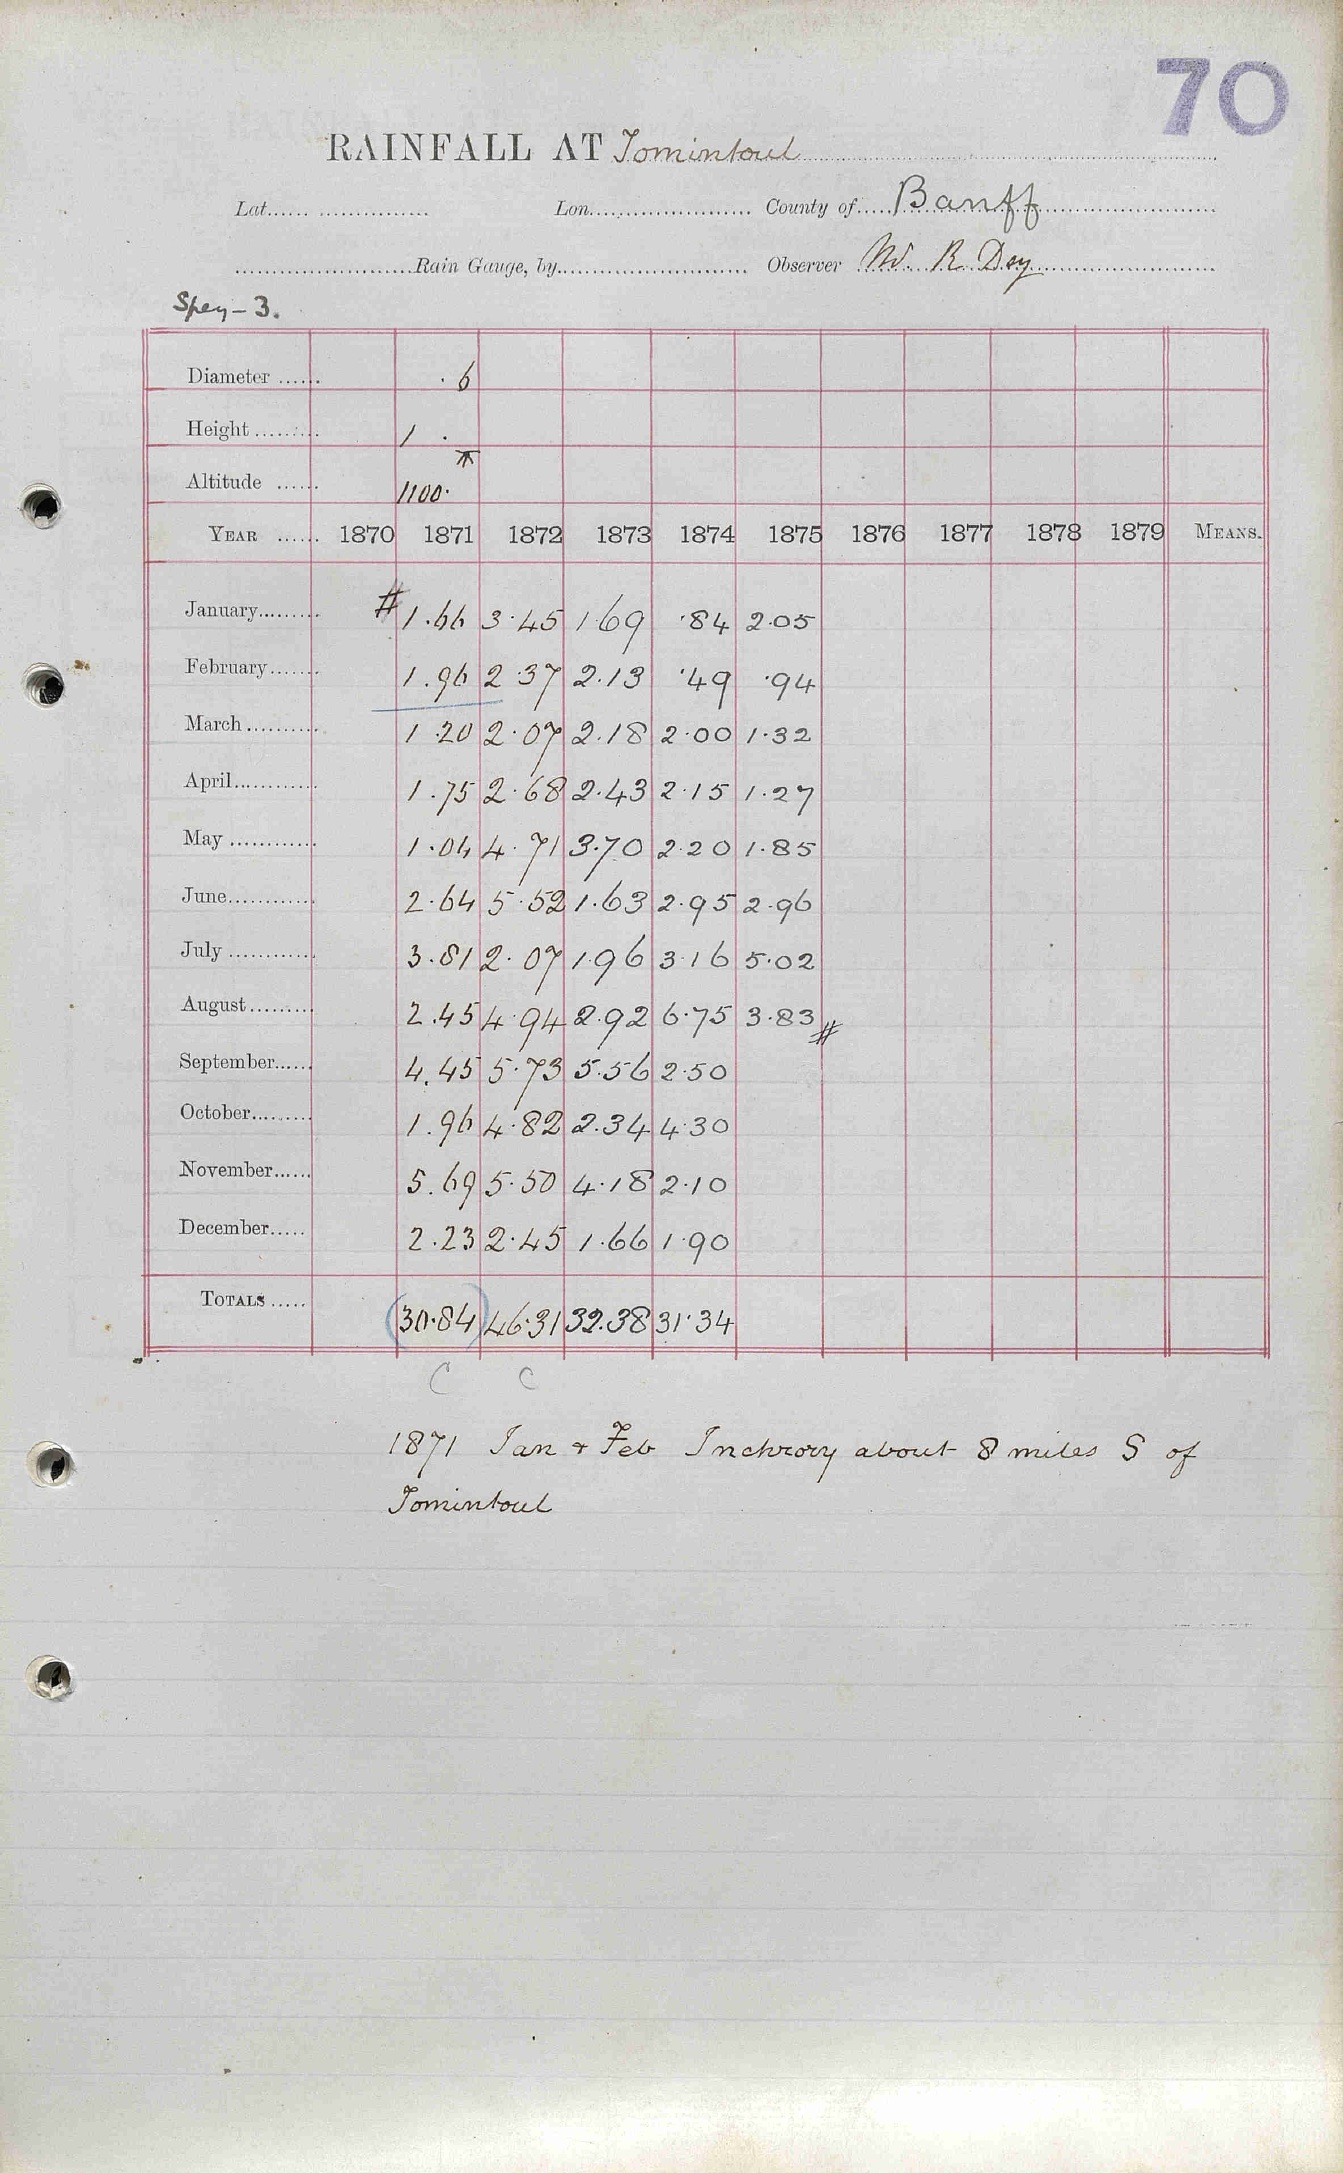 70
RAINFALL AT Tomintoul
Lat. Lon. County of Banff
Rain Gauge, by Observer W. R Dey
Spey - 3.
Diameter ...... . 6
Height ......... 1 .
Altitude ...... 1100.
YEAR ...... 1870 1871 1872 1873 1874 1875 1876 1877 1878 1879 MEANS.
January......... # 1.66 3.45 1.69 .84 2.05
February....... 1.96 2.37 2.13 .49 .94
March.......... 1.20 2.07 2.18 2.00 1.32
April............ 1.75 2.68 2.43 2.15 1.27
May ............ 1.04 4.71 3.70 2.20 1.85
June............ 2.64 5.52 1.63 2.95 2.96
July ............ 3.81 2.07 1.96 3.16 5.02
August......... 2.45 4.94 2.92 6.75 3.83 #
September...... 4.45 5.73 5.56 2.50
October......... 1.96 4.82 2.34 4.30
November...... 5.69 5.50 4.18 2.10
December..... 2.23 2.45 1.66 1.90
TOTALS ..... (30.84) 46.31 32.38 31.34
C C
1871 Jan + Feb Inchrory about 8 miles S of
Tomintoul